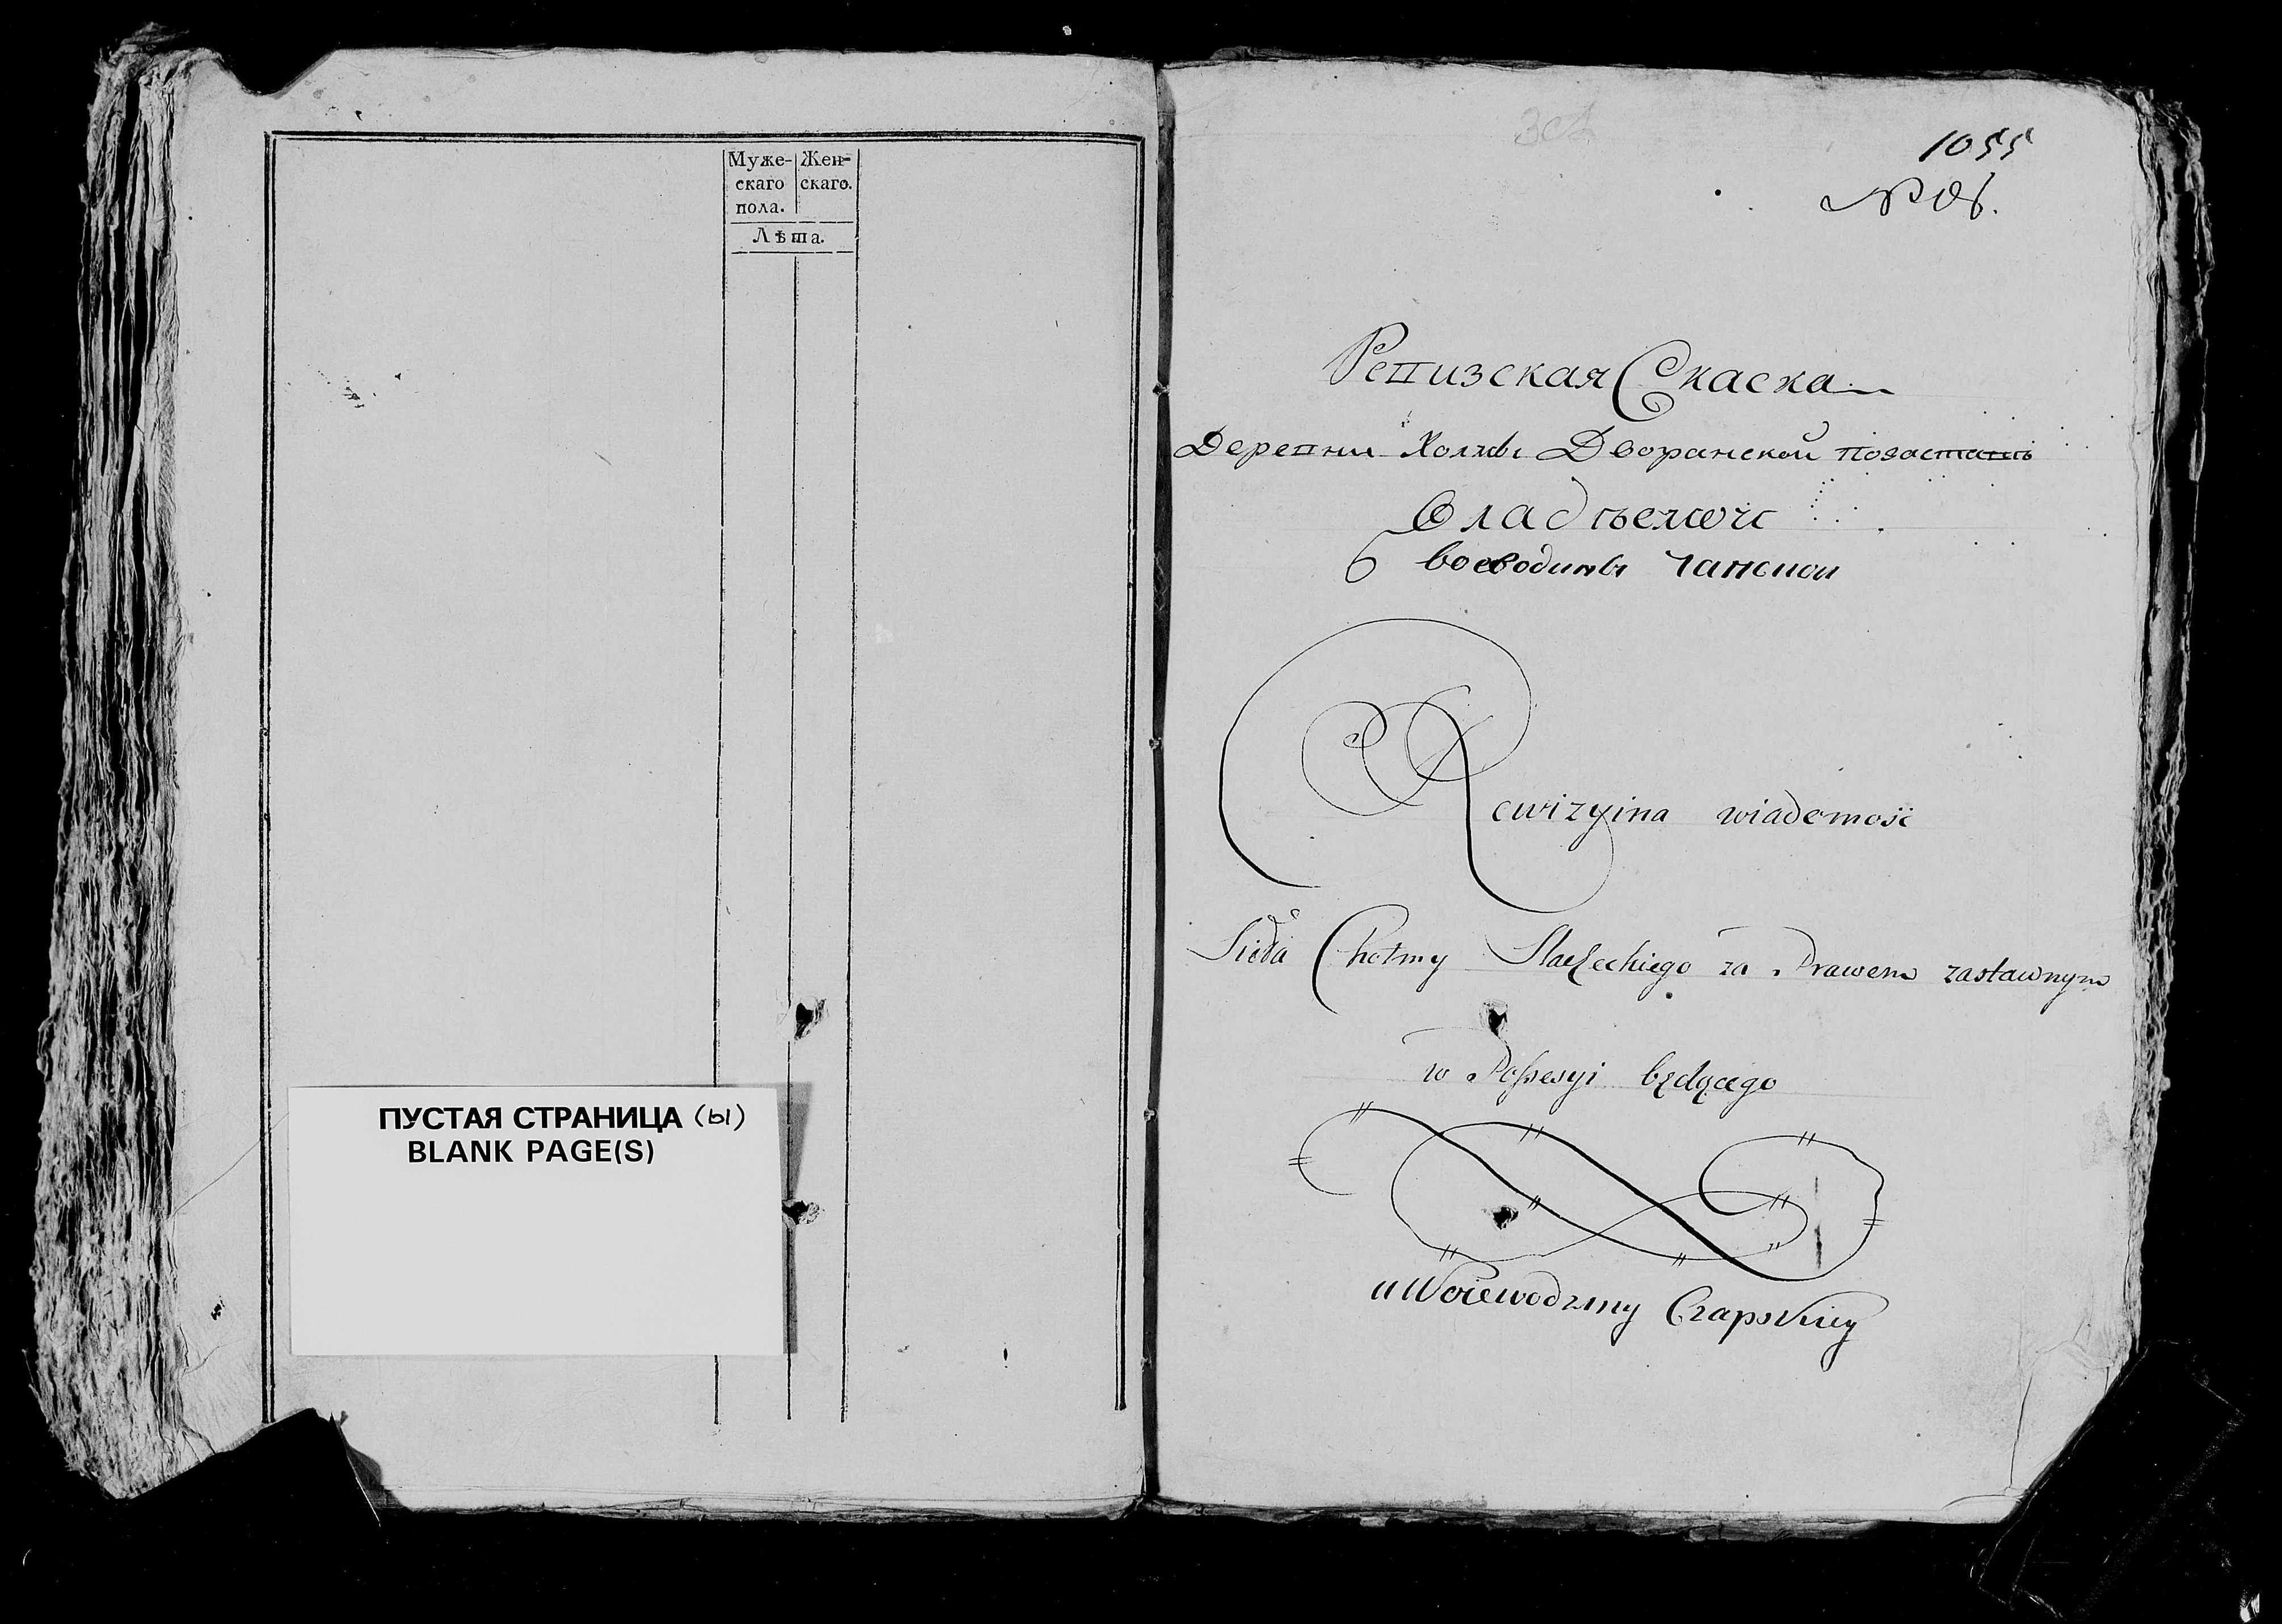 Муже-
скаго
пола.
Жен-
скаго.
Лѣта.
ПУСТАЯ СТРАНИЦА (ы)
BLANK PAGE(S)
1055
Ревизская Скаска
Деревни Холмы Дворанской
Владѣемой
воеводины
Rewizyina wiadomość
Sioła Chołmy Slacheckiego za Prawem zastawnym
w Possesyi będącego
u Woiewodziny Czapskiey